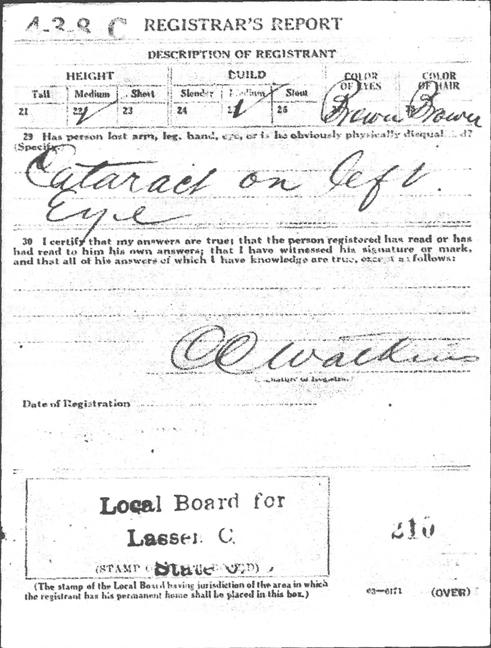 4-3-8 C REGISTRAR'S REPORT
DESCRIPTION OF REGISTRANT
HEIGHT BUILD COLOR OF EYES COLOR OF HAIR
Tall Medium Short Slender Medium Stout
21 22 ✓ 23 24 ✓ 26 Brown Brown
29 Has person lost arm, leg, hand, eye, or is he obviously physically disqual d?
(Specify.
Cataract on left
eye
30 I certify that my answers are true; that the person registered has read or has
had read to him his own answers; that I have witnessed his signature or mark,
and that all of his answers of which I have knowledge are true, except as follows:
CC Watkins
Date of Registration
Local Board for
Lassen C
(STAMP
State
(The stamp of the Local Board having jurisdiction of the area in which
the registrant has his permanent home shall be placed in this box.)
210
03—6171 (OVER)